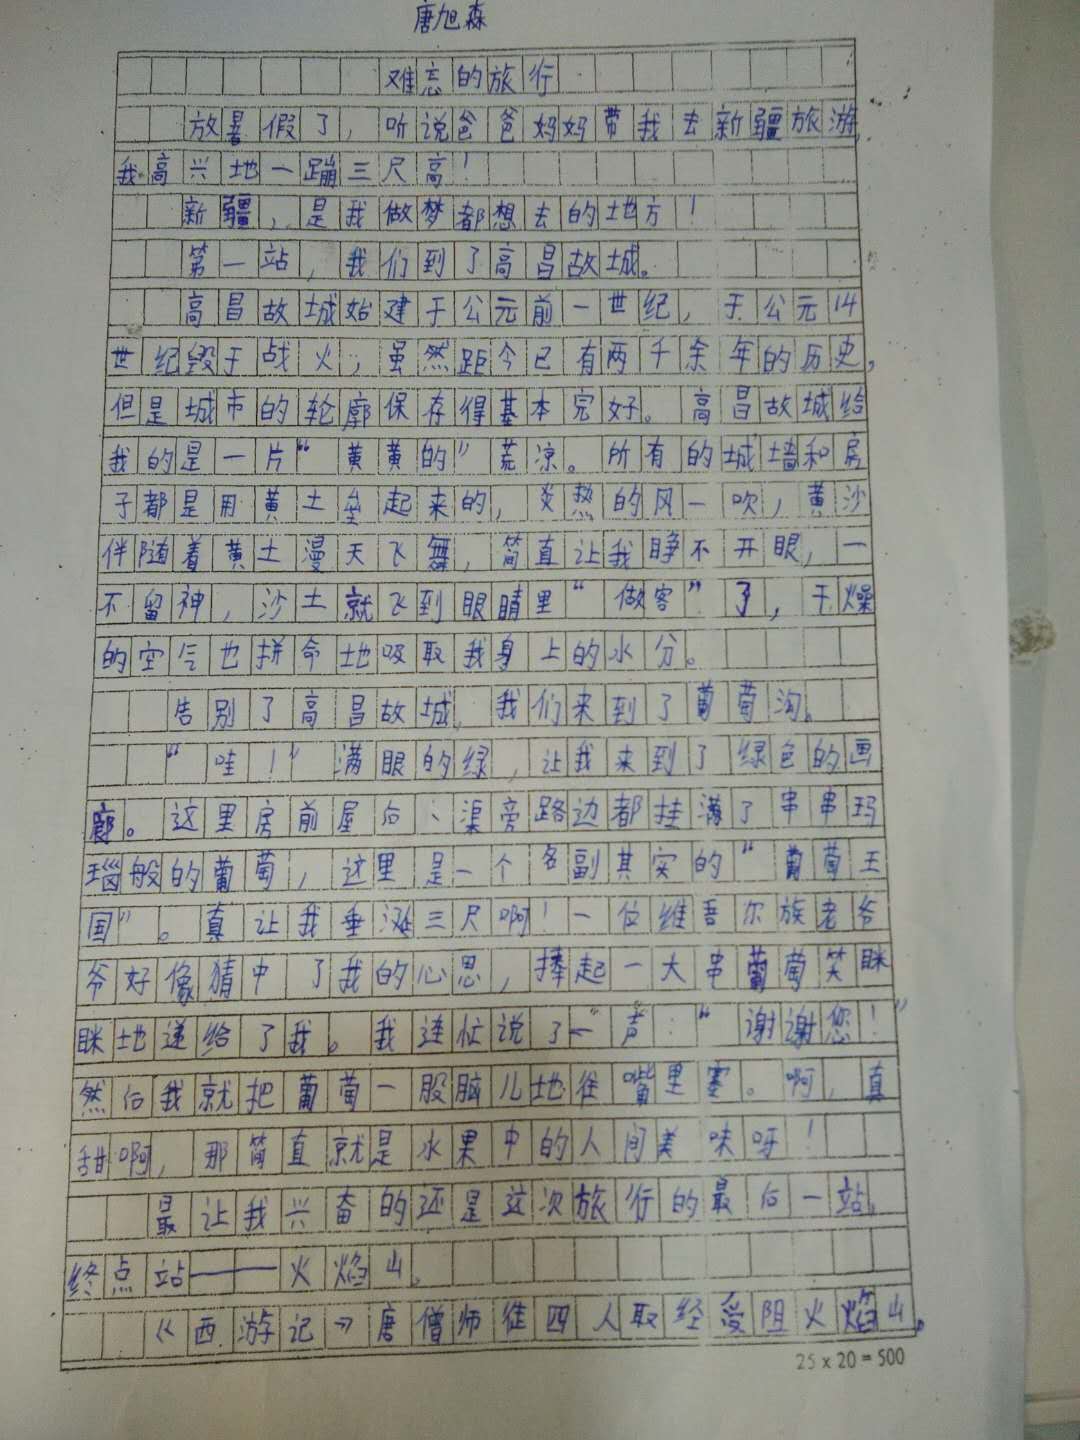 唐旭森
难忘的旅行
放暑假了，听说爸爸妈妈带我去新疆旅游，
我高兴地一蹦三尺高！
新疆，是我做梦都想去的地方！
第一站，我们到了高昌故城。
高昌故城始建于公元前一世纪，于公元14
世纪毁于战火，虽然距今已有两千余年的历史，
但是城市的轮廓保存得基本完好。高昌故城给
我的是一片“黄黄的”荒凉。所有的城墙和房
子都是用黄土垒起来的，炎热的风一吹，黄沙
伴随着黄土漫天飞舞，简直让我睁不开眼，一
不留神，沙土就飞到眼睛里“做客”了，干燥
的空气也拼命地吸取我身上的水分。
告别了高昌故城，我们来到了葡萄沟。
“哇！”满眼的绿，让我来到了绿色的画
廊。这里房前屋后、渠旁路边都挂满了串串玛
瑙般的葡萄，这里是一个名副其实的“葡萄王
国”。真让我垂涎三尺啊！一位维吾尔族老爷
爷好像猜中了我的心思，捧起一大串葡萄笑眯
眯地递给了我。我连忙说了一声：“谢谢您！”
然后我就把葡萄一股脑儿地往嘴里塞。啊，真
甜啊，那简直就是水果中的人间美味呀！
最让我兴奋的还是这次旅行的最后一站。
终点站——火焰山。
《西游记》唐僧师徒四人取经受阻火焰山。
25 x 20 = 500